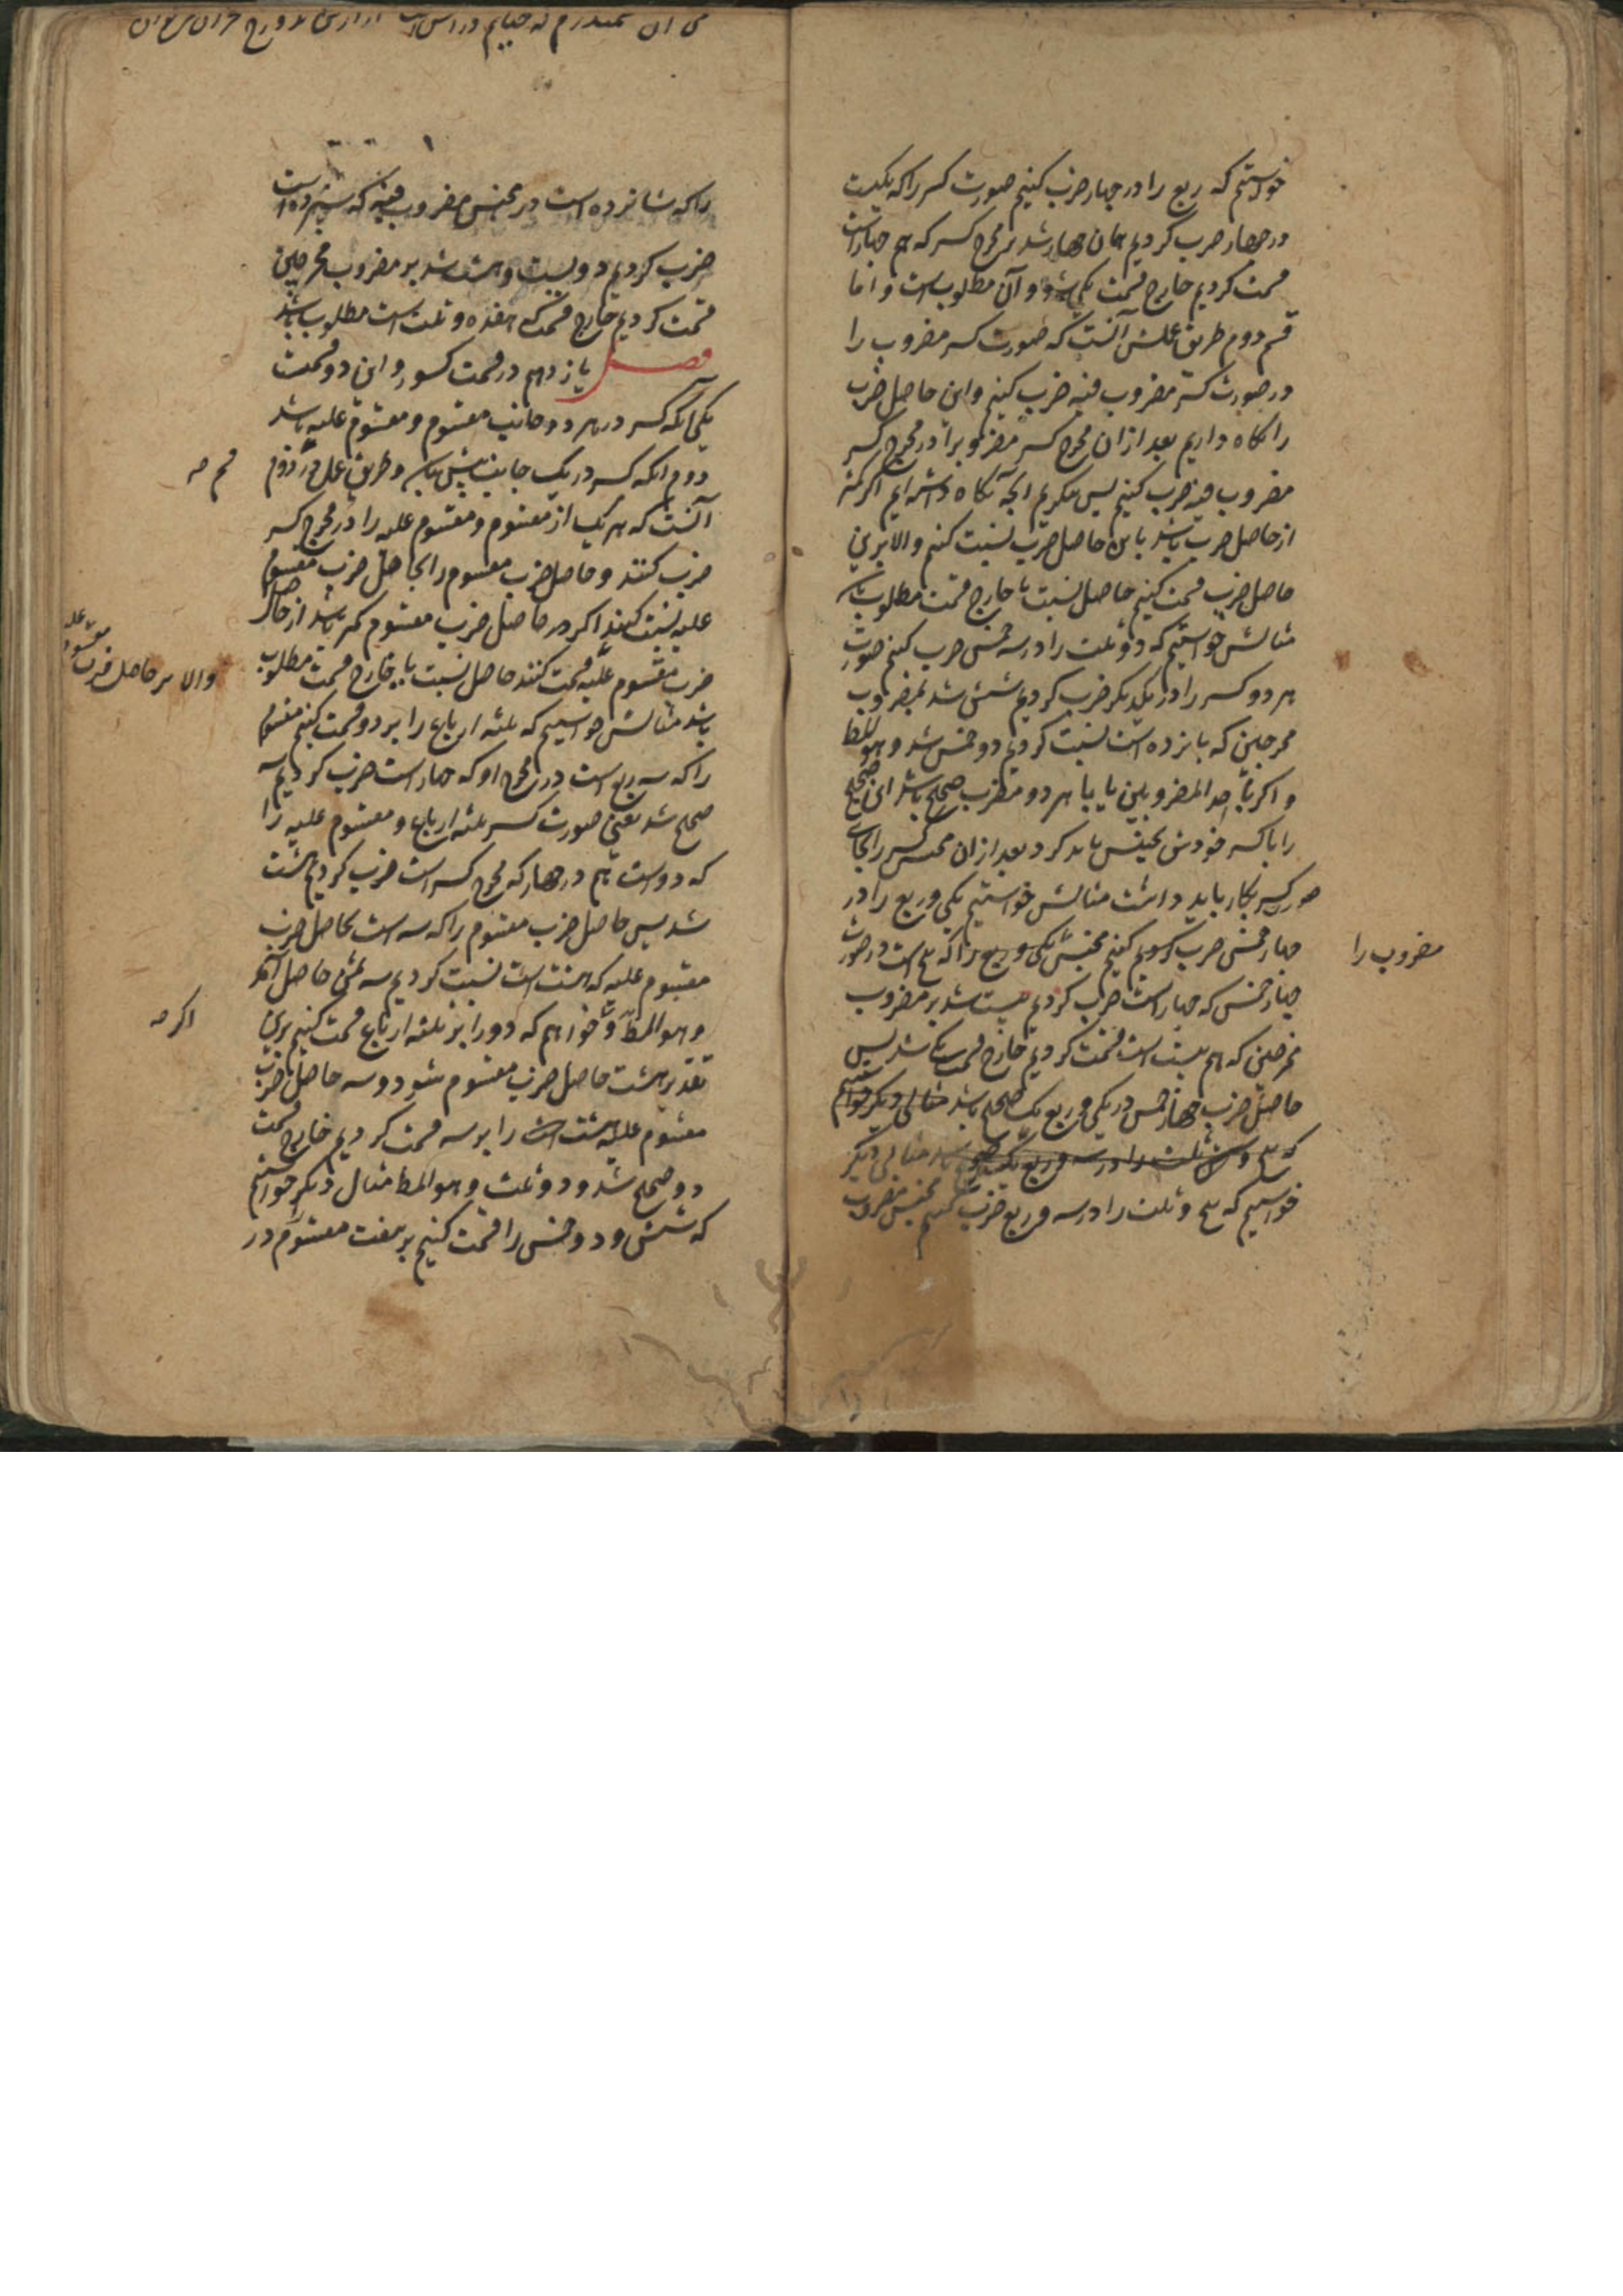 خواستیم که ربع را در چهار ضرب کنیم صورت کسر را که یکیست
در چهار ضرب کردیم همان چهار شد بر مخرج کسر که هم چهار است
قسمت کردیم خارج قسمت یکی شد و آن مطلوب است و اما
قسم دوم طریق عملش آنست که صورت کسر مضروب را
در صورت کسر مضروب فیه ضرب کنیم و این حاصل ضرب
را نگاه داریم بعد ازان مخرج کسر مضروب را در مخرج کسر
مضروب فیه ضرب کنیم پس نگریم آنچه نگاه داشته ایم اگر کمتر
از حاصل ضرب باشد باین حاصل ضرب نسبت کنیم و الا برین
حاصل ضرب قسمت کنیم حاصل نسبت یا خارج قسمت مطلوب باشد
مثالش خواستیم که دو ثلث را در سه خمس ضرب کنیم صورت
هر دو کسر را در یکدیگر ضرب کردیم شش شد بمضروب
مخرجین که پانزده است نسبت کردیم دو خمس شد و هو المط
و اگر با احد المضروبین یا با هر دو مضرب صحیح باشد این صحیح
را با کسر خودش تجنیس باید کرد بعد ازان مجنس کسر را بجای
صورت کسر بکار باید داشت مثالش خواستیم یکی و ربع را در
چهار خمس ضرب کنیم مجنس یکی و ربع را که ۵ است در صورت
مضروب را
چهار خمس که چهار است ضرب کردیم بیست شد بر مضروب
مخرجین که هم بیست است قسمت کردیم خارج قسمت یک شد پس
حاصل ضرب چهار خمس در یکی و ربع یک صحیح باشد مثالی دیگر خواستیم
که ۵ و ثلث را در سه و ربع مثالی دیگر
خواستیم که ۵ و ثلث را در سه و ربع ضرب کنیم مجنس مضروب
را که شانزده است در مجنس مضروب فیه که سیزده است
ضرب کردیم دویست و هشت شد بر مضروب مخرجین
قسمت کردیم خارج قسمت که هفده و ثلث است مطلوب باشد
فصل یازدهم در قسمت کسور و این دو قسمت
یکی آنکه کسر در هر دو جانب مقسوم و مقسوم علیه باشد
دوم آنکه کسر در یک جانب بیش نباشد و طریق عمل در دوم
قسم صه
آنست که هر یک از مقسوم و مقسوم علیه را در مخرج کسر
ضرب کنند و حاصل ضرب مقسوم را بحاصل ضرب مقسوم
علیه نسبت کنند اگر حاصل ضرب مقسوم کمتر باشد از حاصل
والا بر حاصل ضرب مقسوم علیه
ضرب مقسوم علیه قسمت کنند حاصل نسبت یا خارج قسمت مطلوب
باشد مثالش خواستیم که ثلثه ارباع را بر دو قسمت کنیم مقسوم
را که سه ربع است در مخرج او که چهار است ضرب کردیم سه
صحیح شد یعنی صورت کسر ثلثه ارباع و مقسوم علیه را
که دو است هم در چهار که مخرج کسر است ضرب کردیم هشت
شد پس حاصل ضرب مقسوم را که سه است بحاصل ضرب
مقسوم علیه که هشت است نسبت کردیم سه ثمن حاصل آمد
و هو المط و خواهیم که دو را بر ثلثه ارباع قسمت کنیم برین
اگر صه
تقدیر هشت حاصل ضرب مقسوم شود و سه حاصل ضرب
مقسوم علیه هشت را بر سه قسمت کردیم خارج قسمت
دو صحیح شد و دو ثلث و هو المط مثال دیگر خواستیم
که شش و دو خمس را قسمت کنیم بر هفت مقسوم در